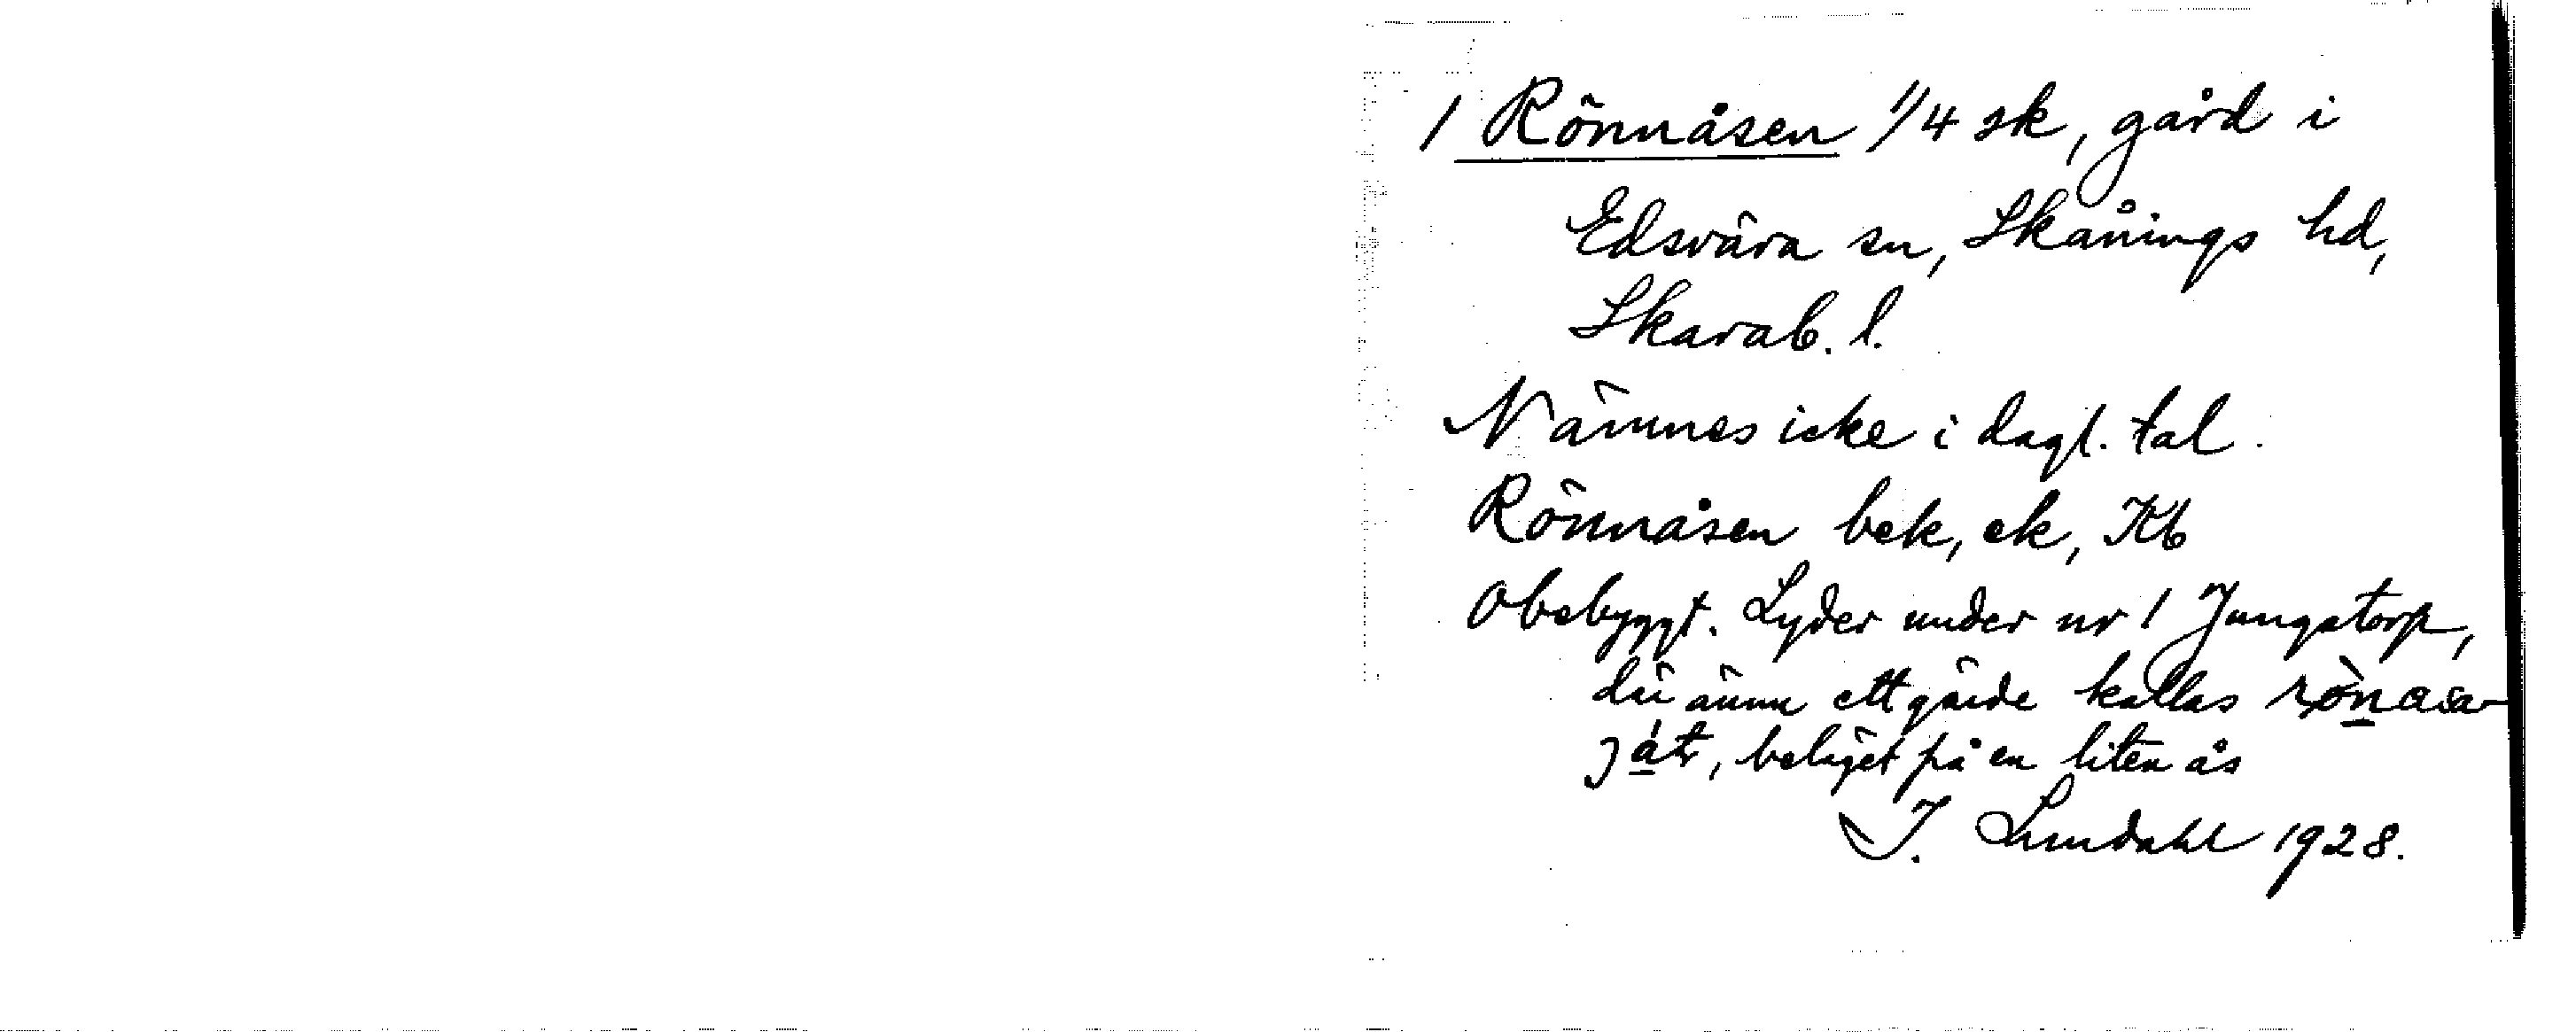 1 Rönnåsen 1/4 sk, gård i
Edsvära sn, Skånings hd,
Skarab. l.
Nämnes icke i dagl. tal.
Rönnåsen bek, ek, Kb
Obebyggt. Lyder under nr 1 Jungstorp,
där ännu ett gärde kallas
, beläget på en liten ås
I. Lundahl 1928.